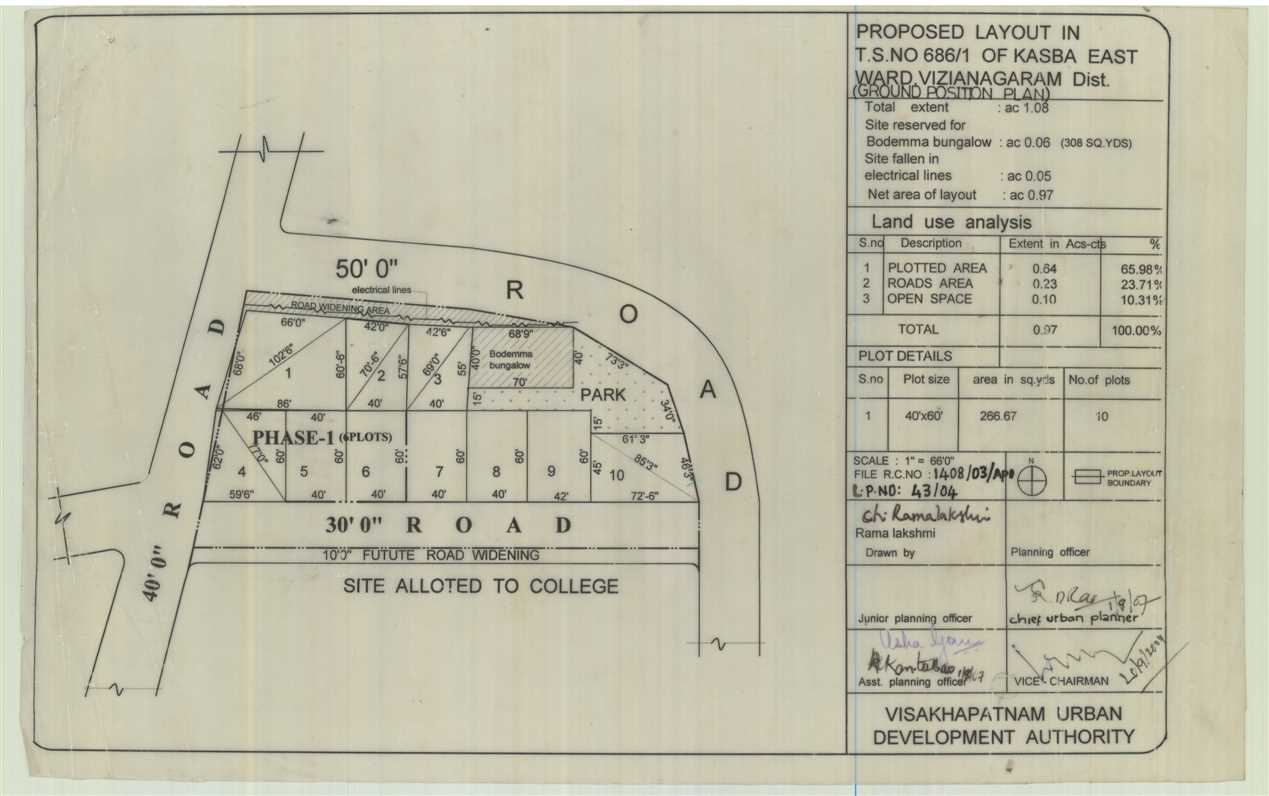 PROPOSED LAYOUT IN
T.S.NO 686/1 OF KASBA EAST
WARD,VIZIANAGARAM Dist.
(GROUND POSITION PLAN)
Total extent : ac 1.08
Site reserved for
Bodemma bungalow : ac 0.06 (308 SQ.YDS)
Site fallen in
electrical lines : ac 0.05
Net area of layout : ac 0.97
Land use analysis
S.no Description Extent in Acs-cts %
1 PLOTTED AREA 0.64 65.98%
2 ROADS AREA 0.23 23.71%
3 OPEN SPACE 0.10 10.31%
TOTAL 0.97 100.00%
PLOT DETAILS
S.no Plot size area in sq.yds No.of plots
1 40'x60' 266.67 10
SCALE : 1" = 66'0"
FILE R.C.NO :1408/03/
L.P.NO: 43/04
N
PROP.LAYOUT
BOUNDARY
Ch Ramalakshmi
Rama lakshmi
Drawn by
Planning officer
Junior planning officer
1/9/07
chief urban planner
Asst. planning officer
VICE - CHAIRMAN
VISAKHAPATNAM URBAN
DEVELOPMENT AUTHORITY
50' 0" R O A D
electrical lines
ROAD WIDENING AREA
66'0" 42'0" 42'6" 68'9"
68'0" 102'6" 60'-6" 70'-6" 57'6" 69'0" 55' 40'0" 40' 73'3"
Bodemma
bungalow
1 2 3
70'
PARK
15' 34'0"
86' 40' 40'
46' 40' 15'
PHASE-1 (6PLOTS)
61' 3"
62'0" 77'0" 60' 60' 60' 60' 60' 60' 45' 85'3" 46'3"
4 5 6 7 8 9 10
59'6" 40' 40' 40' 40' 42' 72'-6"
30' 0" R O A D
10'0" FUTUTE ROAD WIDENING
SITE ALLOTED TO COLLEGE
40' 0" R O A D